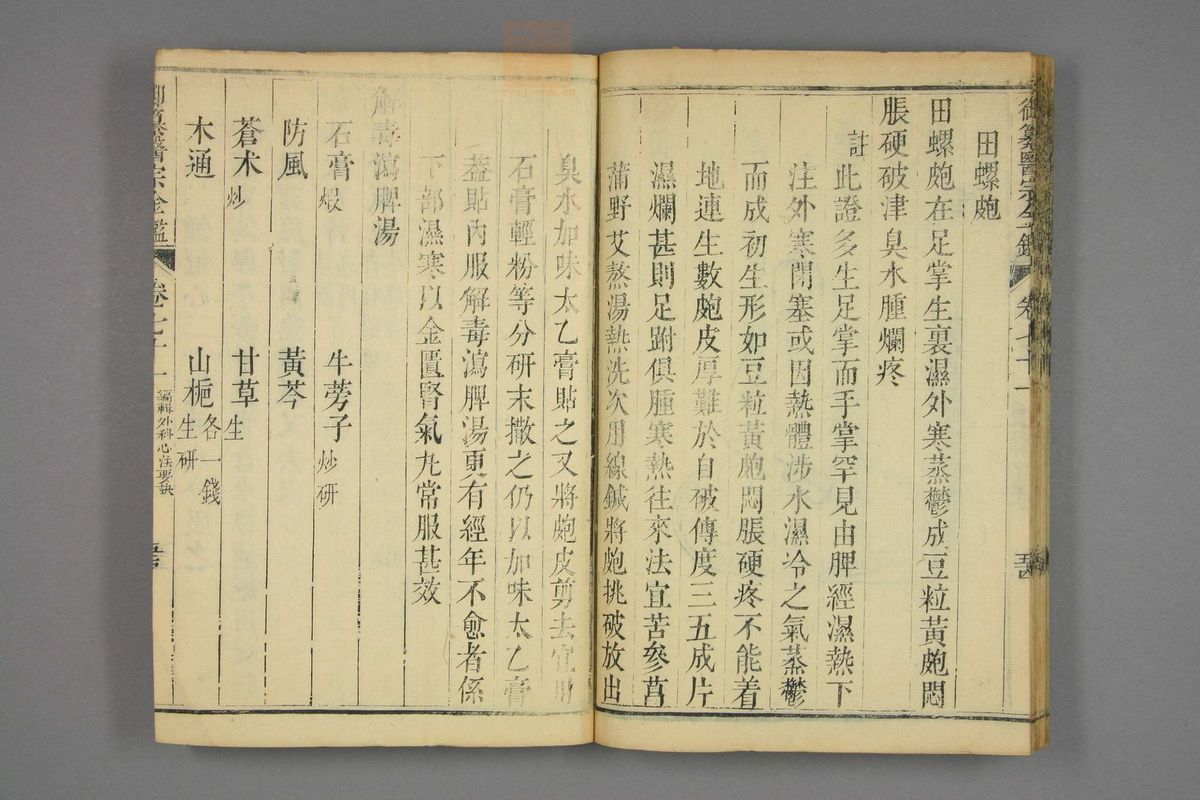 御纂醫宗金鑑 卷七十一
田螺皰
田螺皰在足掌生裏濕外寒蒸鬱成豆粒黃皰悶
脹硬破津臭水腫爛疼
註此證多生足掌而手掌罕見由脾經濕熱下
注外寒閉塞或因熱體涉水濕冷之氣蒸鬱
而成初生形如豆粒黃皰悶脹硬疼不能着
地連生數皰皮厚難於自破傳度三五成片
濕爛甚則足跗俱腫寒熱往來法宜苦參菖
蒲野艾熬湯熱洗次用線鍼將皰挑破放出
臭水加味太乙膏貼之又將皰皮剪去宜用
石膏輕粉等分研末撒之仍以加味太乙膏
蓋貼內服解毒瀉脾湯更有經年不愈者係
下部濕寒以金匱腎氣丸常服甚效
解毒瀉脾湯
石膏煅 牛蒡子炒研
防風 黃芩
蒼朮炒 甘草生
木通 山梔生研各一錢
御纂醫宗金鑑 卷七十一 編輯外科心法要訣